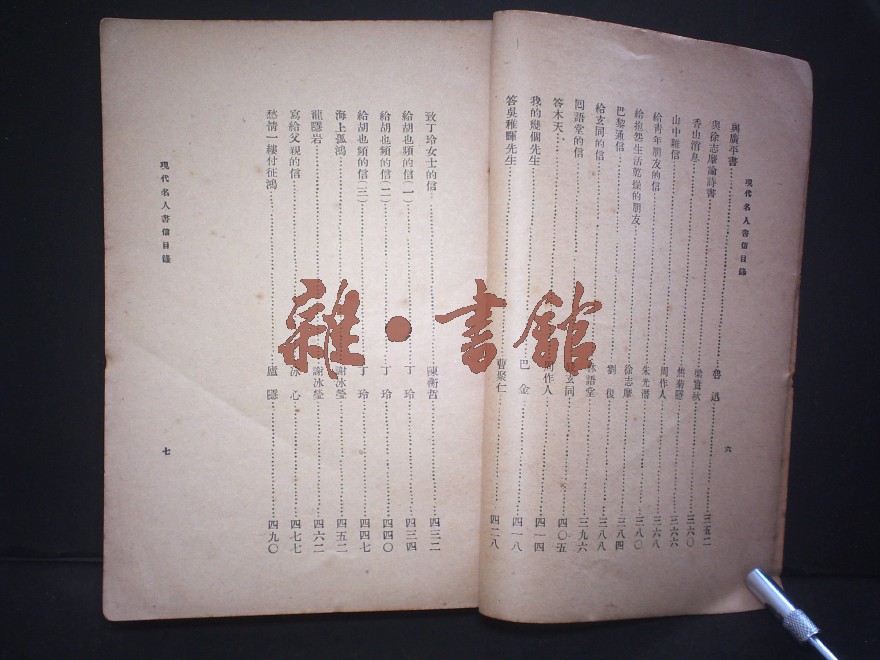 現代名人書信目錄 六
與廣平書……魯迅……三五二
與徐志摩論詩書……梁實秋……三六〇
香山消息……焦菊隱……三六六
山中雜信……周作人……三六八
給青年朋友的信……朱光潛……三八〇
給抱怨生活乾燥的朋友……徐志摩……三八四
巴黎通信……劉復……三八八
給玄同的信……林語堂……三九六
回語堂的信……玄同……四〇五
答木天……周作人……四一四
我的幾個先生……巴金……四一八
答吳稚暉先生……曹聚仁……四二八
致丁玲女士的信……陳衡哲……四三二
給胡也頻的信(一)……丁玲……四三四
給胡也頻的信(二)……丁玲……四四〇
給胡也頻的信(三)……丁玲……四四七
海上孤鴻……謝冰瑩……四五二
龍隱岩……謝冰瑩……四六二
寫給父親的信……冰心……四七七
愁情一縷付征鴻……廬隱……四九〇
現代名人書信目錄 七
雜·書館